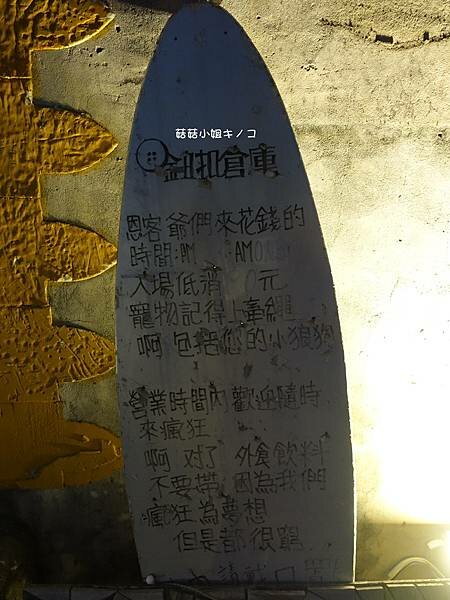 菇菇小姐キノコ
鈕扣倉庫
恩客爺們來花錢的
時間:AM AM
入場低消 0元
寵物記得上牽繩
啊 包括您的小狼狗
營業時間內歡迎隨時
來瘋狂
啊 对了 外食飲料
不要帶, 因為我們
瘋狂為夢想
但是都很窮
請戴口罩